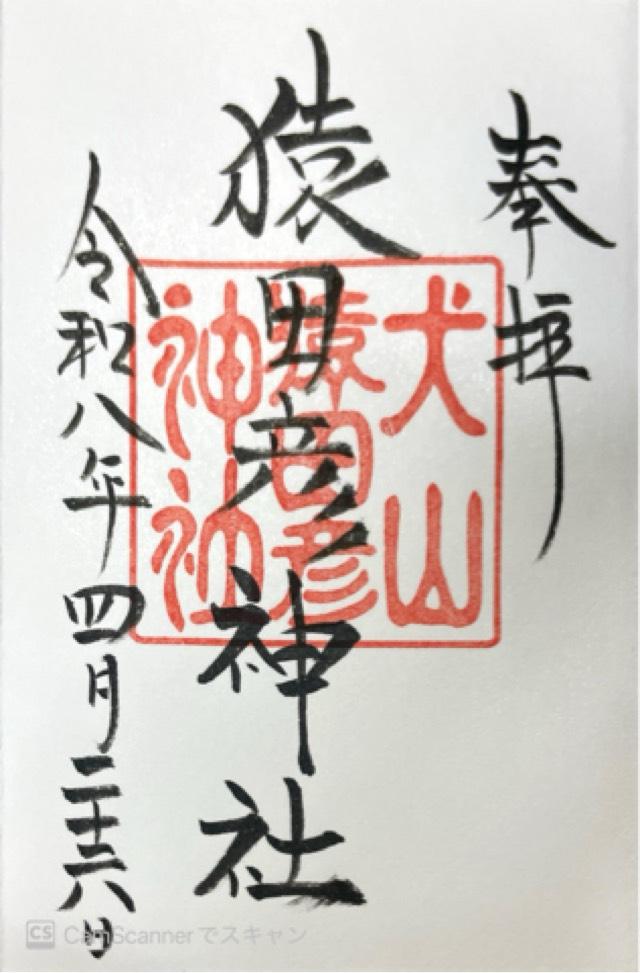 奉拝
犬山
猿田彦
神社
猿田彦神社
令和八年四月二十六日
CS CamScannerでスキャン